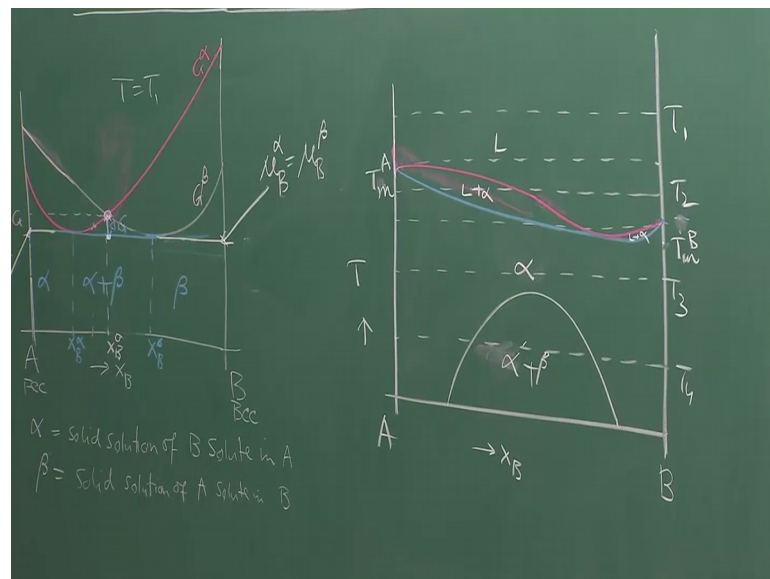 T=T₁
G^α
G^β
μ_B^α = μ_B^β
G
α
α+β
β
X_B^α
X_B^o
X_B^β
→ X_B
A
FCC
B
BCC
α = solid solution of B solute in A
β = solid solution of A solute in B
T₁
L
T_m^A
L+α
T₂
L+α
T_m^B
T
↑
α
T₃
α+β
T₄
A
→ X_B
B